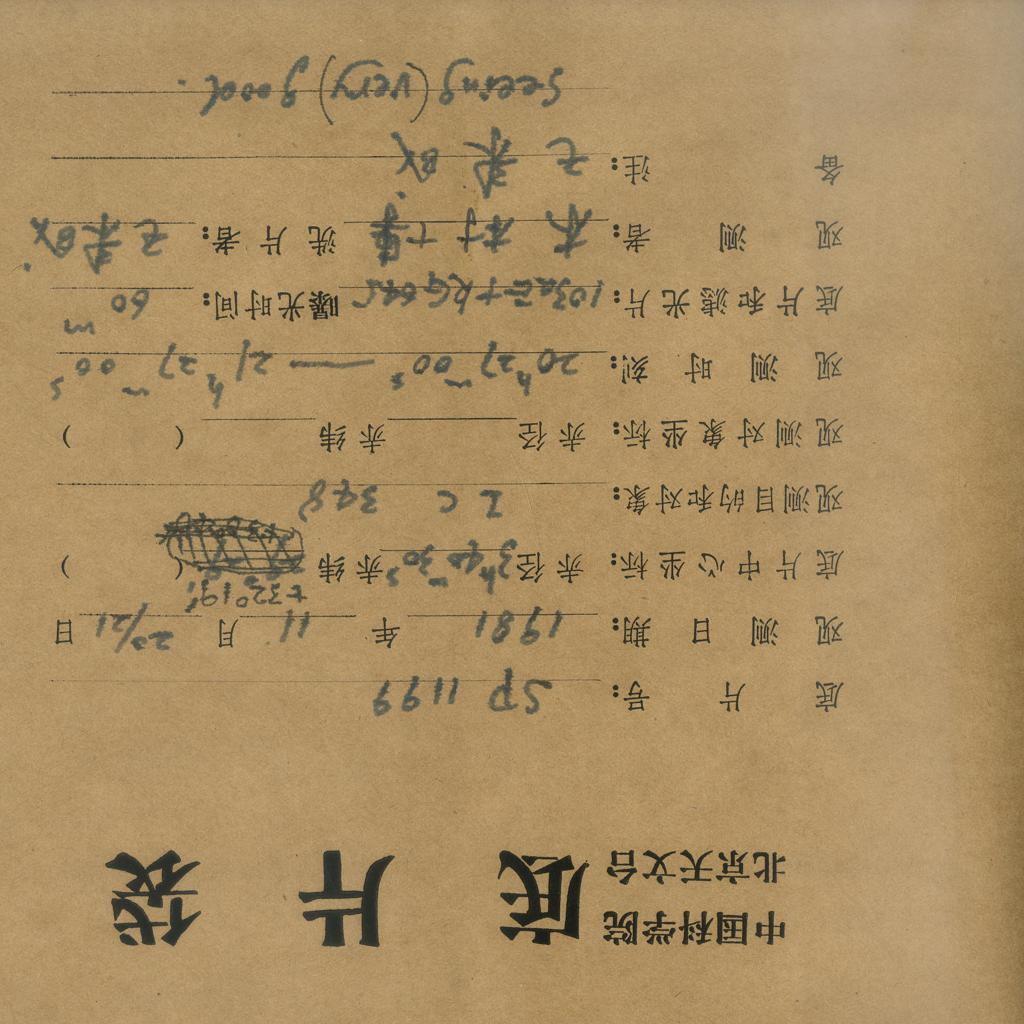 中国科学院
北京天文台
底片袋
底片号: SP 1199
观测日期: 1981 年 11 月 20/21 日
底片中心坐标: 赤径 3h40m30s 赤纬 +32°19′ ( )
观测目的和对象: IC 348
观测对象坐标: 赤径 赤纬 ( )
观测时刻: 20h27m00s — 21h27m00s
底片和滤光片: 103aE+RG645 曝光时间: 60m
观测者: 木村博 洗片者:
备注:
Seeing (very) good.